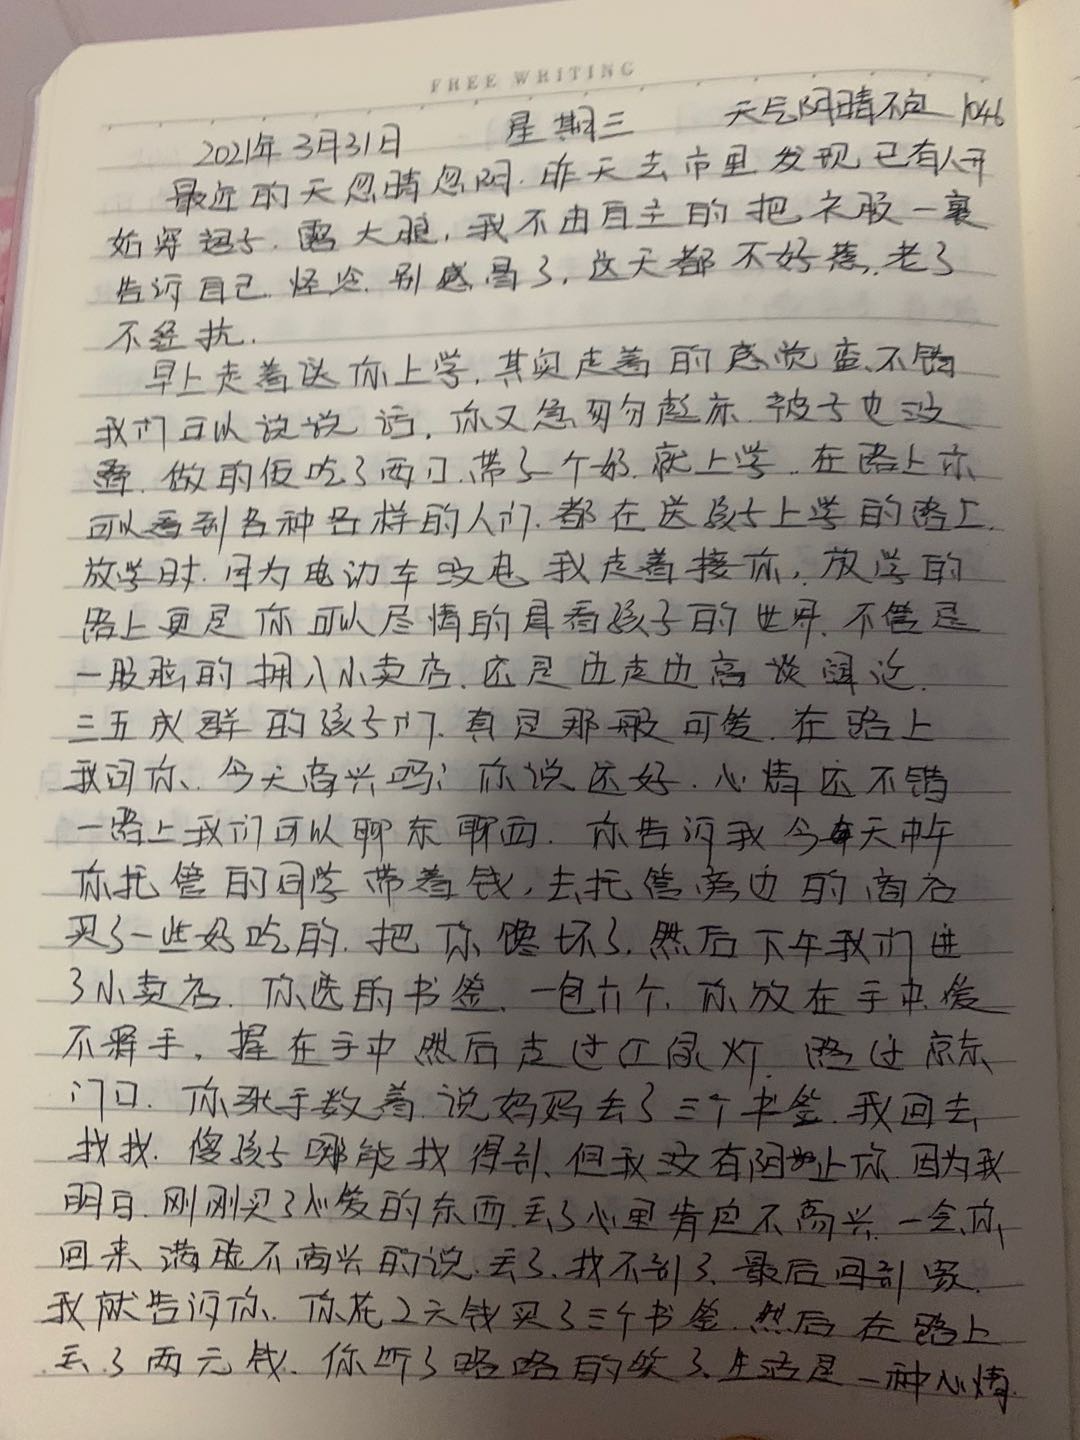 FREE WRITING
2021年3月31日 星期三 天气阴晴不定 1046
最近的天忽晴忽阴.昨天去市里发现已有人开
始穿裙子.露大腿,我不由自主的把衣服一裹
告诉自己.怪冷.别感冒了,这天都不好惹.老了
不经抗.
早上走着送你上学,其实走着的感觉蛮不错
我们可以说说话,你又急匆匆起床.被子也没
叠.做的饭吃了两口.带了个奶.就上学.在路上亦
可以看到各种各样的人们.都在送孩子上学的路上.
放学时.因为电动车没电.我走着接你,放学的
路上更是你可以尽情的看孩子的世界.不管是
一股脑的拥入小卖店.还是边走边高谈阔论.
三五成群的孩子们.真是那般可爱.在路上
我问你.今天高兴吗?你说还好.心情还不错
一路上我们可以聊东聊西.你告诉我今天中午
你托管的同学带着钱,去托管旁边的商店
买了一些好吃的.把你馋坏了.然后下午我们进
了小卖店.你选的书签.一包六个.你放在手中.爱
不释手,握在手中然后走过红绿灯.路过京东
门口.你张手数着.说妈妈丢了三个书签.我回去
找找.傻孩子哪能找得到.但我没有阻止你.因为我
明白.刚刚买了心爱的东西.丢了心里肯定不高兴.一会你
回来满脸不高兴的说.丢了.找不到了.最后回到家.
我就告诉你.你花2元钱买了三个书签.然后在路上
丢了两元钱.你听了咯咯的笑了.生活是一种心情.